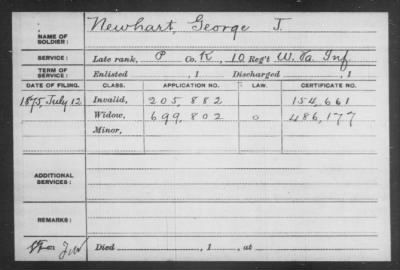 NAME OF SOLDIER: Newhart, George J.
SERVICE: Late rank, P Co. K, 10 Reg't W. Va. Inf.
TERM OF SERVICE: Enlisted , 1 Discharged , 1
DATE OF FILING. CLASS. APPLICATION NO. LAW. CERTIFICATE NO.
1875, July 12 Invalid, 205,882 154,661
Widow, 699,802 o 486,177
Minor,
ADDITIONAL SERVICES:
REMARKS:
Died , 1 , at